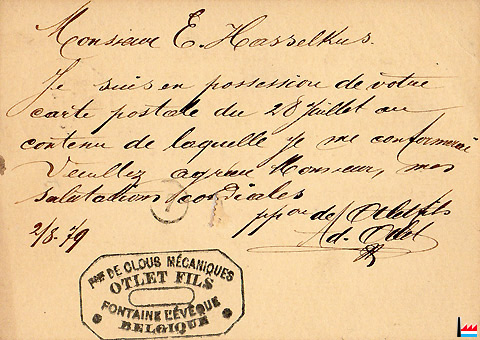 Monsieur E. Hasselkus.
Je suis en possession de votre
carte postale du 28 Juillet au
contenu de laquelle je me conformerai
Veuillez agréer Monsieur, mes
salutations cordiales
ppon de Otlet fils
Ad. Otlet
2/8-79
FQUE DE CLOUS MÉCANIQUES
OTLET FILS
FONTAINE L'ÉVÊQUE
BELGIQUE